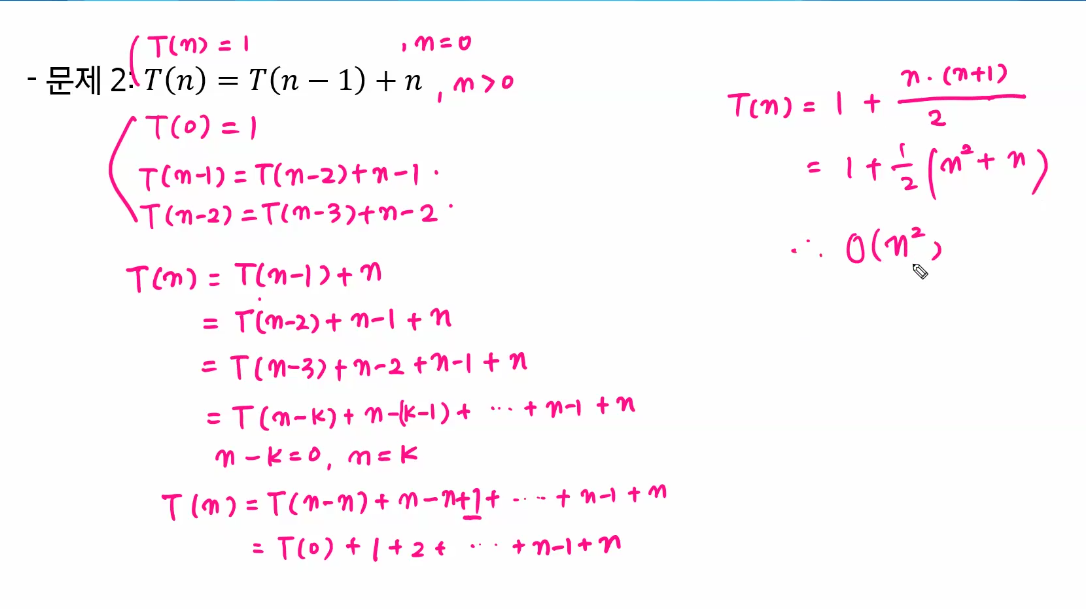 T(n) = 1 , n=0
- 문제 2: T(n) = T(n − 1) + n , n>0
T(0) = 1
T(n-1) = T(n-2)+n-1 .
T(n-2) = T(n-3)+n-2 .
T(n) = T(n-1)+n
= T(n-2)+n-1+n
= T(n-3)+n-2+n-1+n
= T(n-k)+n-(k-1)+ ⋯ +n-1+n
n-k=0, n=k
T(n) = T(n-n)+n-n+1+ ⋯ +n-1+n
= T(0)+1+2+ ⋯ +n-1+n
T(n) = 1 + n·(n+1)/2
= 1 + 1/2 (n²+n)
∴ O(n²)